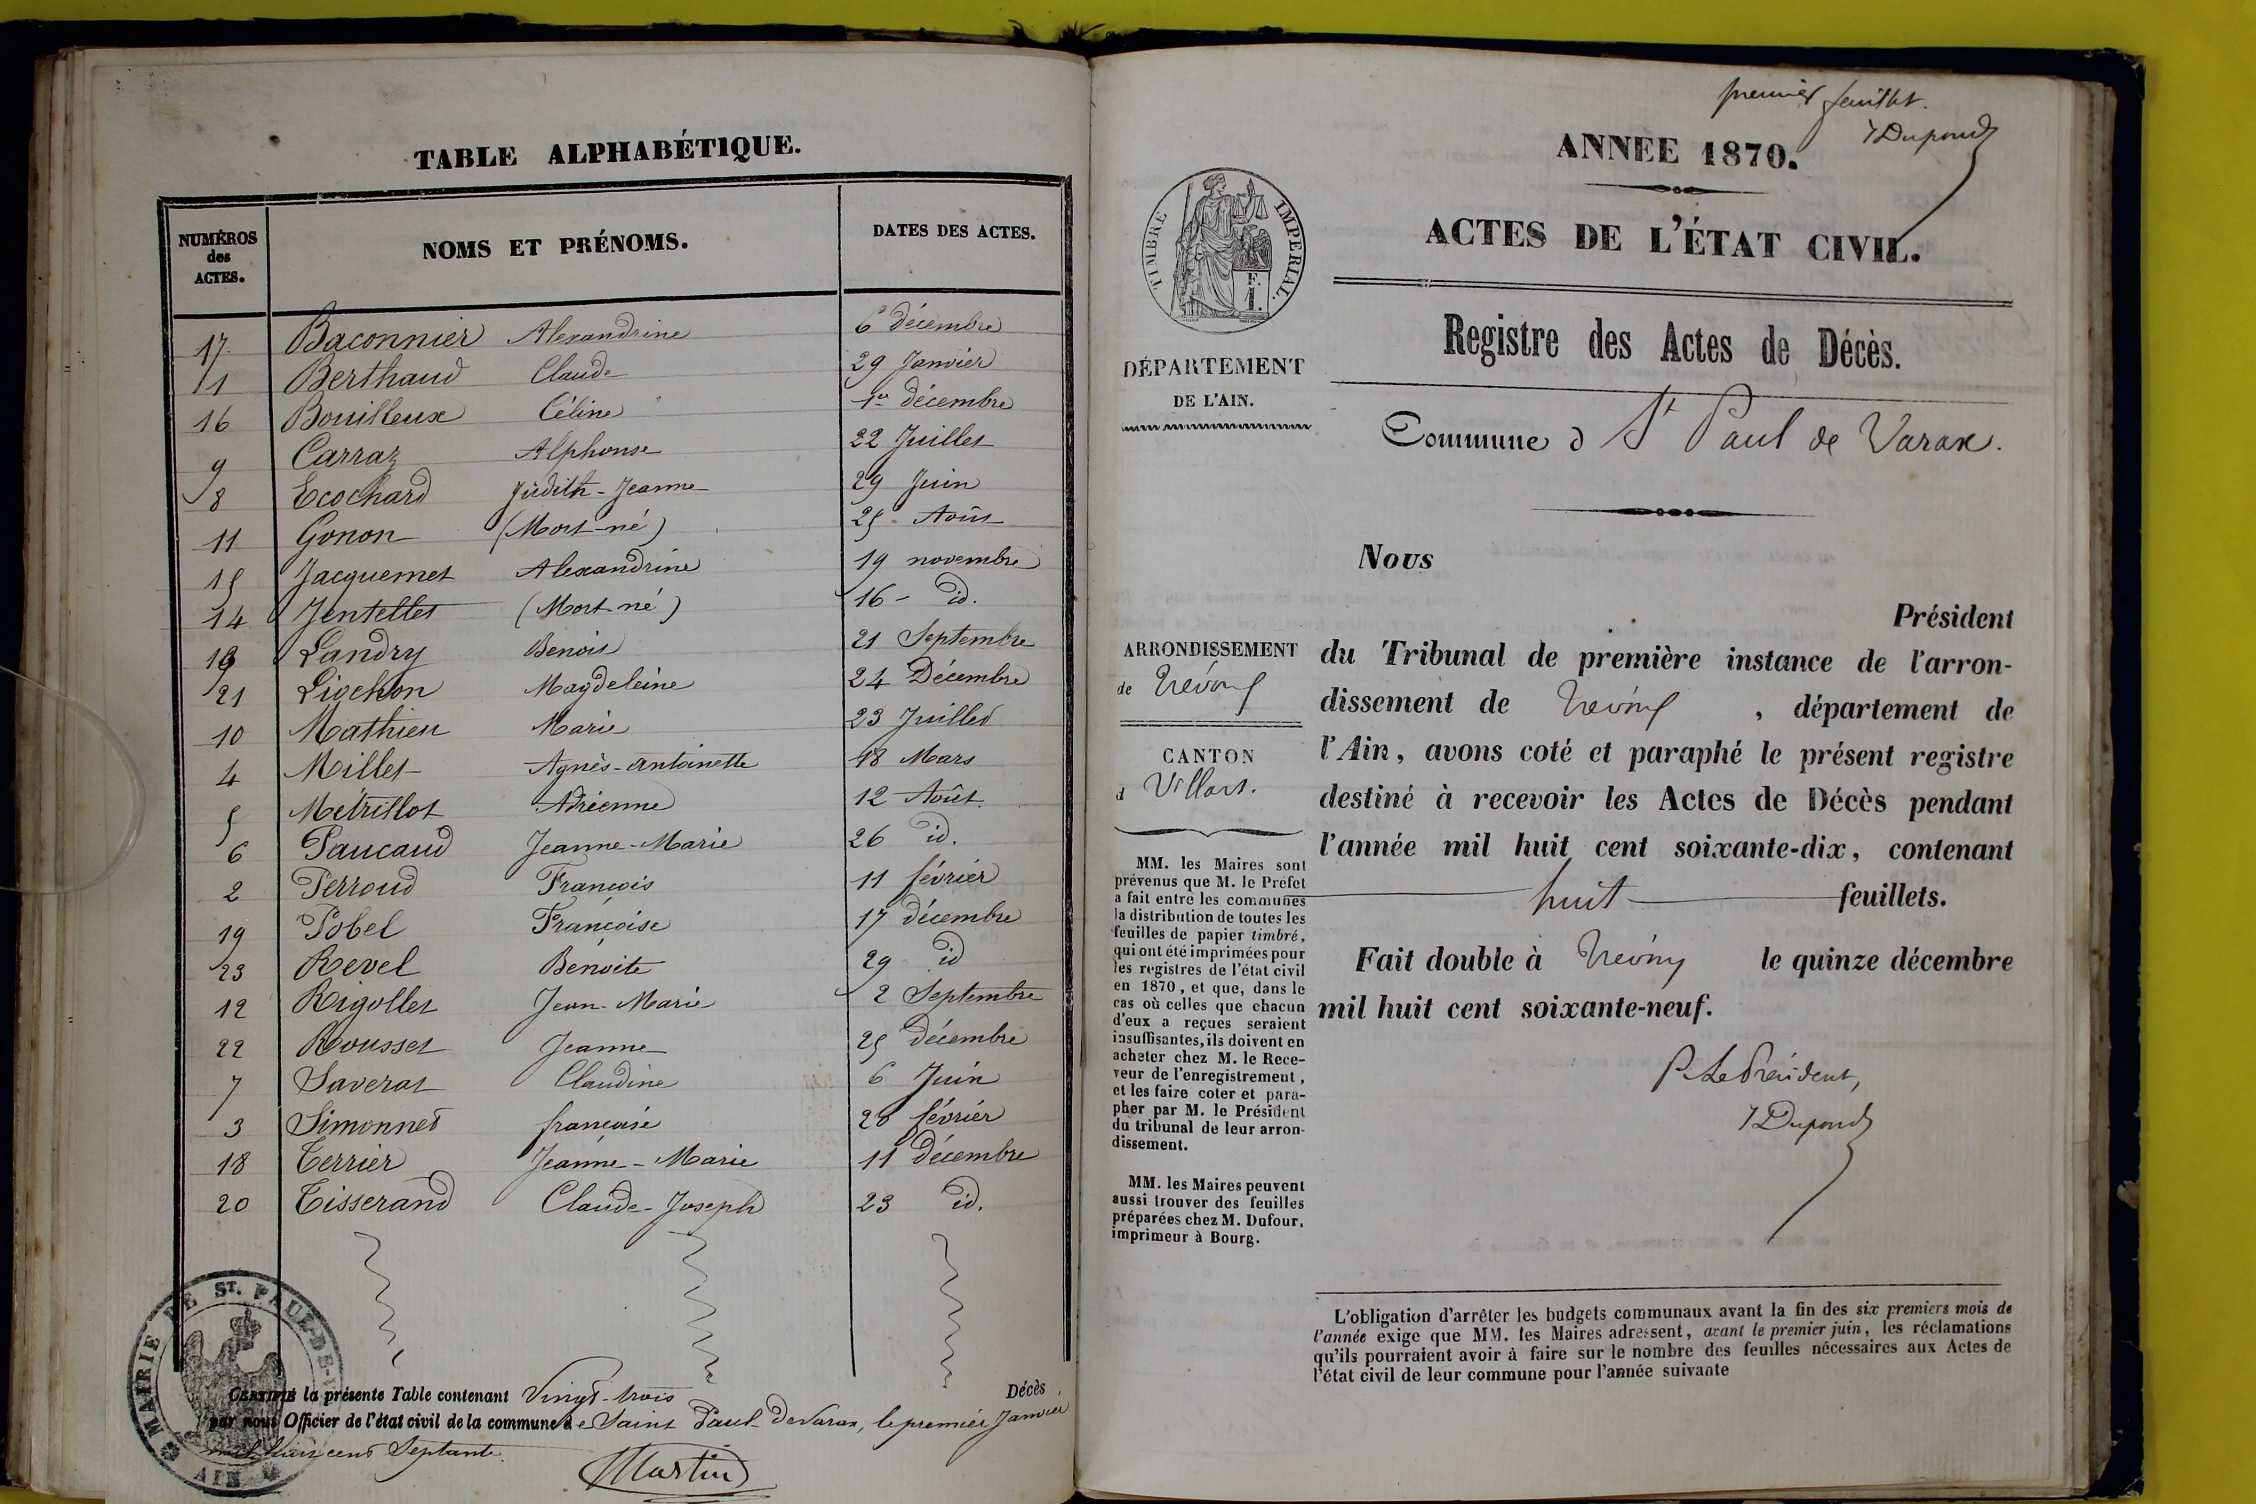 TABLE ALPHABÉTIQUE.
NUMÉROS des ACTES. NOMS ET PRÉNOMS. DATES DES ACTES.
17 Baconnier Alexandrine 6 décembre
1 Berthaud Claude 29 Janvier
16 Bouilleux Céline 1er décembre
9 Carraz Alphonse 22 Juillet
8 Ecochard Judith-Jeanne 29 Juin
11 Gonon (Mort-né) 25 Août
15 Jacquemet Alexandrine 19 novembre
14 Jentelles (Mort-né) 16 - id.
13 Landry Benoit 21 Septembre
21 Liochon Magdeleine 24 Décembre
10 Mathieu Marie 23 Juillet
4 Millet Agnès-antoinette 18 Mars
5 Métrillot Adrienne 12 Août
6 Paucaud Jeanne-Marie 26 id.
2 Perroud François 11 février
19 Pobel Françoise 17 décembre
23 Revel Benoite 29 id
12 Rigollet Jean-Marie 2 Septembre
22 Rousset Jeanne 25 décembre
7 Saverat Claudine 6 Juin
3 Simonnet françoise 28 février
18 Terrier Jeanne-Marie 11 décembre
20 Tisserand Claude-Joseph 23 id.
MAIRIE DE ST. PAUL-DE-V
AIN
CERTIFIÉ la présente Table contenant Vingt-trois Décès
par nous Officier de l'état civil de la commune de Saint Paul de Varax, le premier Janvier
mil huit cent Septante.
Martin
premier feuillet.
Dupond
ANNÉE 1870.
ACTES DE L'ÉTAT CIVIL.
TIMBRE IMPERIAL.
F.
1.
Registre des Actes de Décès.
DÉPARTEMENT
DE L'AIN.
Commune d St Paul de Varax.
Nous
Président
du Tribunal de première instance de l'arron-
dissement de Trévoux, département de
l'Ain, avons coté et paraphé le présent registre
destiné à recevoir les Actes de Décès pendant
l'année mil huit cent soixante-dix, contenant
huit feuillets.
Fait double à Trévoux le quinze décembre
mil huit cent soixante-neuf.
P. Le Président,
Dupond
ARRONDISSEMENT
de Trévoux
CANTON
d Villars.
MM. les Maires sont
prévenus que M. le Préfet
a fait entre les communes
la distribution de toutes les
feuilles de papier timbré,
qui ont été imprimées pour
les registres de l'état civil
en 1870, et que, dans le
cas où celles que chacun
d'eux a reçues seraient
insuffisantes, ils doivent en
acheter chez M. le Rece-
veur de l'enregistrement,
et les faire coter et para-
pher par M. le Président
du tribunal de leur arron-
dissement.
MM. les Maires peuvent
aussi trouver des feuilles
préparées chez M. Dufour,
imprimeur à Bourg.
L'obligation d'arrêter les budgets communaux avant la fin des six premiers mois de
l'année exige que MM. les Maires adressent, avant le premier juin, les réclamations
qu'ils pourraient avoir à faire sur le nombre des feuilles nécessaires aux Actes de
l'état civil de leur commune pour l'année suivante